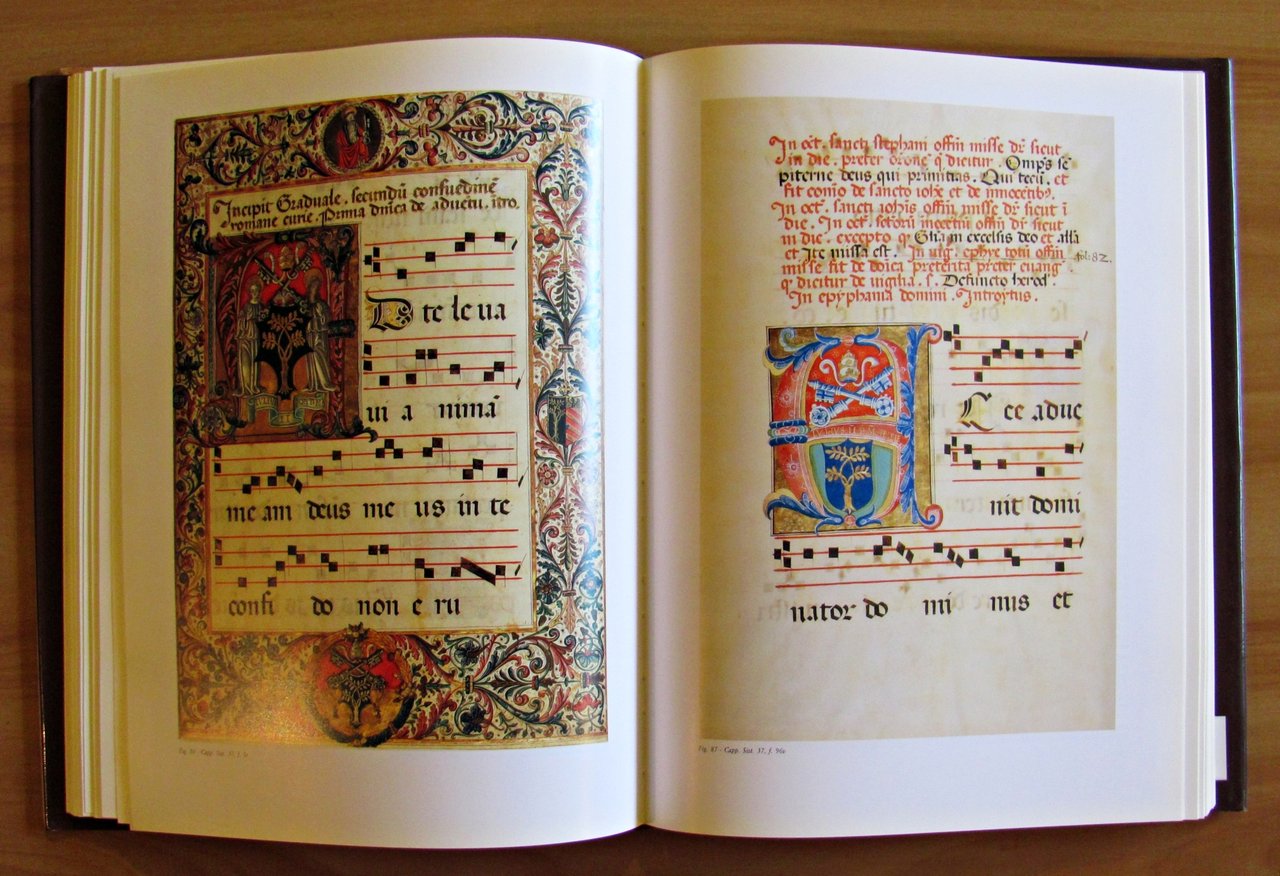 Incipit Graduale. secundũ consuedinẽ
romane curie. Prima dnica de aduetu. itro.
D te le ua
ui a nimã
me am deus me us in te
confi do non e ru
Fig. Capp. Sist. 37, f.
In oct̃. sancti stephani offm̃ misse dr̃ sicut
in die. preter orõne q̃ dicitur. Omps̃ sẽ
piterne deus qui primitias. Qui tecũ. et
fit comõ de sancto iohẽ et de innocẽtibꝫ.
In oct̃. sancti iohis offm̃ misse dr̃ sicut ĩ
die. In oct̃. sctorũ innocẽtũ offm̃ dr̃ sicut
in die. excepto q̃ Glĩa in excelsis deo et alla
et Ite missa est. In uig. ephyẽ totũ offm̃
fol: 82.
misse fit de dnica preterita preter euang̃
q̃ dicitur de uigilia. s. Defuncto herod̃.
In epyphania domini. Introytus.
E ce adue
nit domi
nator do mi nus et
Fig. 87 - Capp. Sist. 37, f. 96v